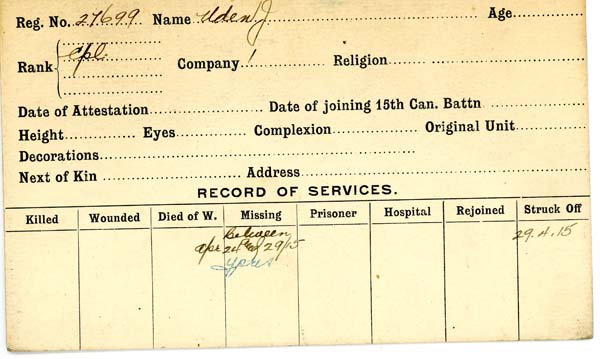 Reg. No. 27699 Name Uden J Age
Rank Cpl. Company 1 Religion
Date of Attestation Date of joining 15th Can. Battn
Height Eyes Complexion Original Unit
Decorations
Next of Kin Address
RECORD OF SERVICES.
Killed Wounded Died of W. Missing Prisoner Hospital Rejoined Struck Off
between 29.4.15
apr 24 & 29/15
Ypres